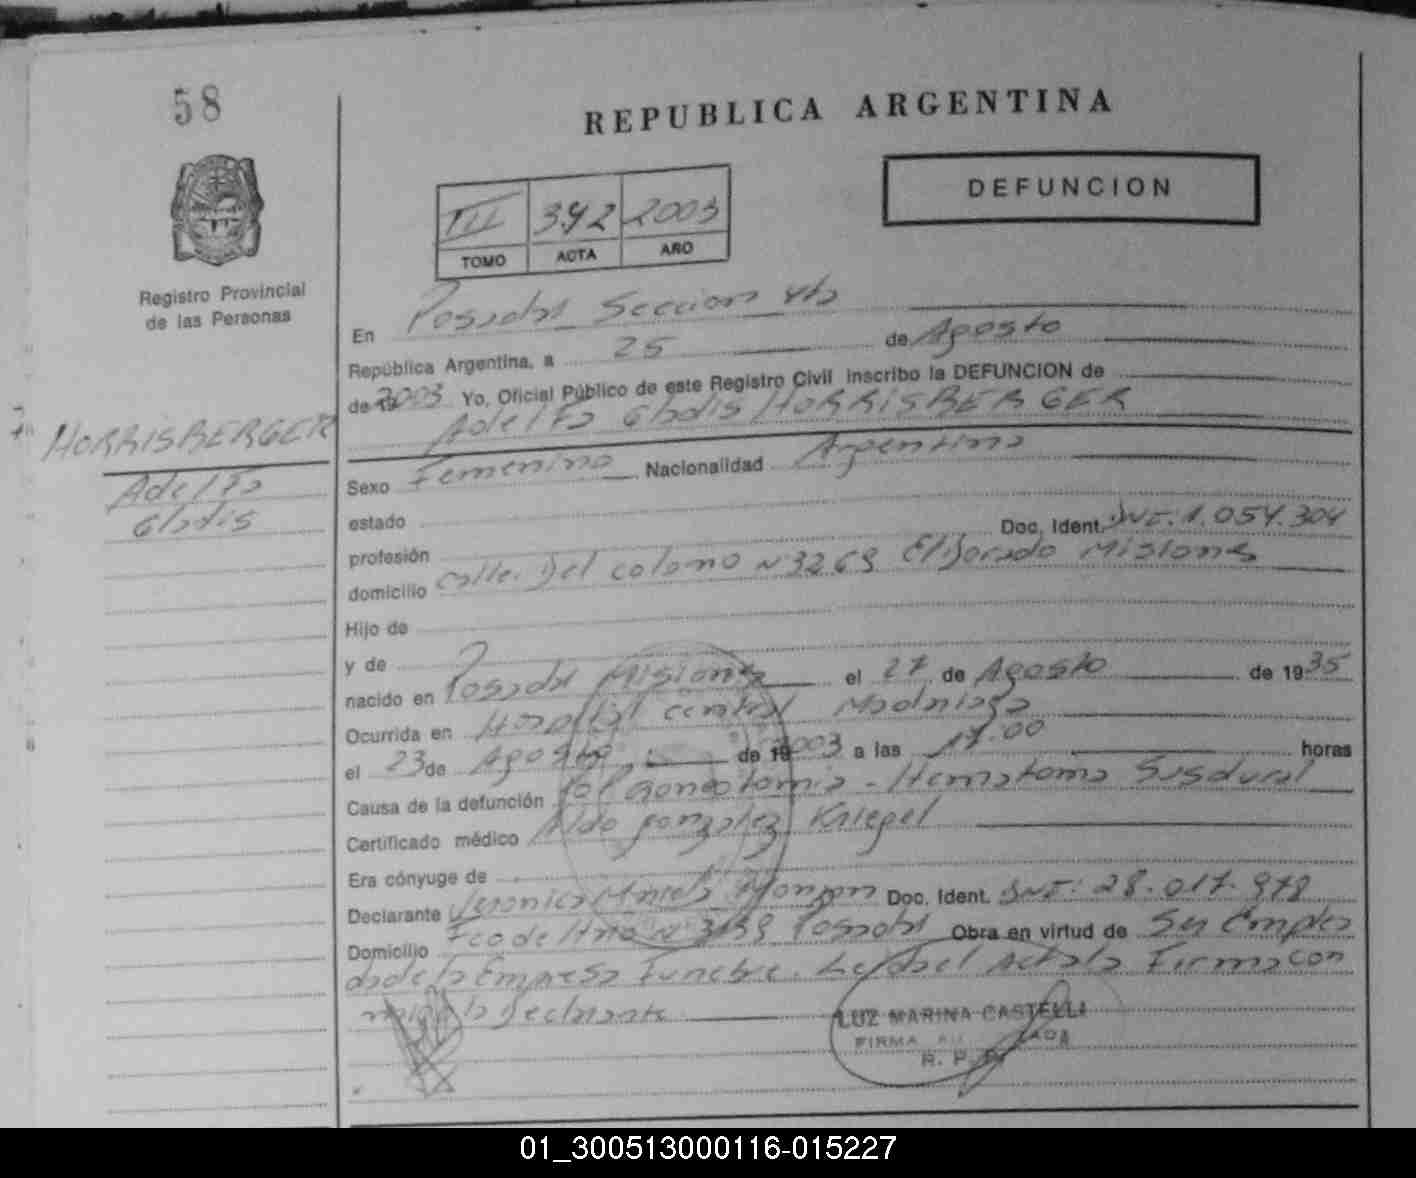 58
REPUBLICA ARGENTINA
DEFUNCION
III 392 2003
TOMO ACTA AÑO
Registro Provincial
de las Personas
En Posadas Seccion 4ta
República Argentina, a 25 de Agosto
de 19 2003 Yo, Oficial Público de este Registro Civil inscribo la DEFUNCION de
Adelfa Gladis HORRISBERGER
HORRISBERGER
Adelfa
Gladis
Sexo Femenino Nacionalidad Argentina
estado
profesión Doc. Ident. DNI: 1.054.304
domicilio calle Del colono N 3269 ElDorado Misiones
Hijo de
y de
nacido en Posadas Misiones el 27 de Agosto de 1935
Ocurrida en Hospital central Madariaga
el 23 de Agosto de 19 2003 a las 17:00 horas
Causa de la defunción Hematoma
Certificado médico Aldo gonzalez Kriegel
Era cónyuge de
Declarante Veronica Monzon Doc. Ident. DNI: 28.017.978
Domicilio Fco de Haro N 3139 Posadas Obra en virtud de Ser Emplea
da de la Empresa Funebre. Leida el Acta la Firma con
migo la Declarante
LUZ MARINA CASTELLI
FIRMA
R. P.
01_300513000116-015227